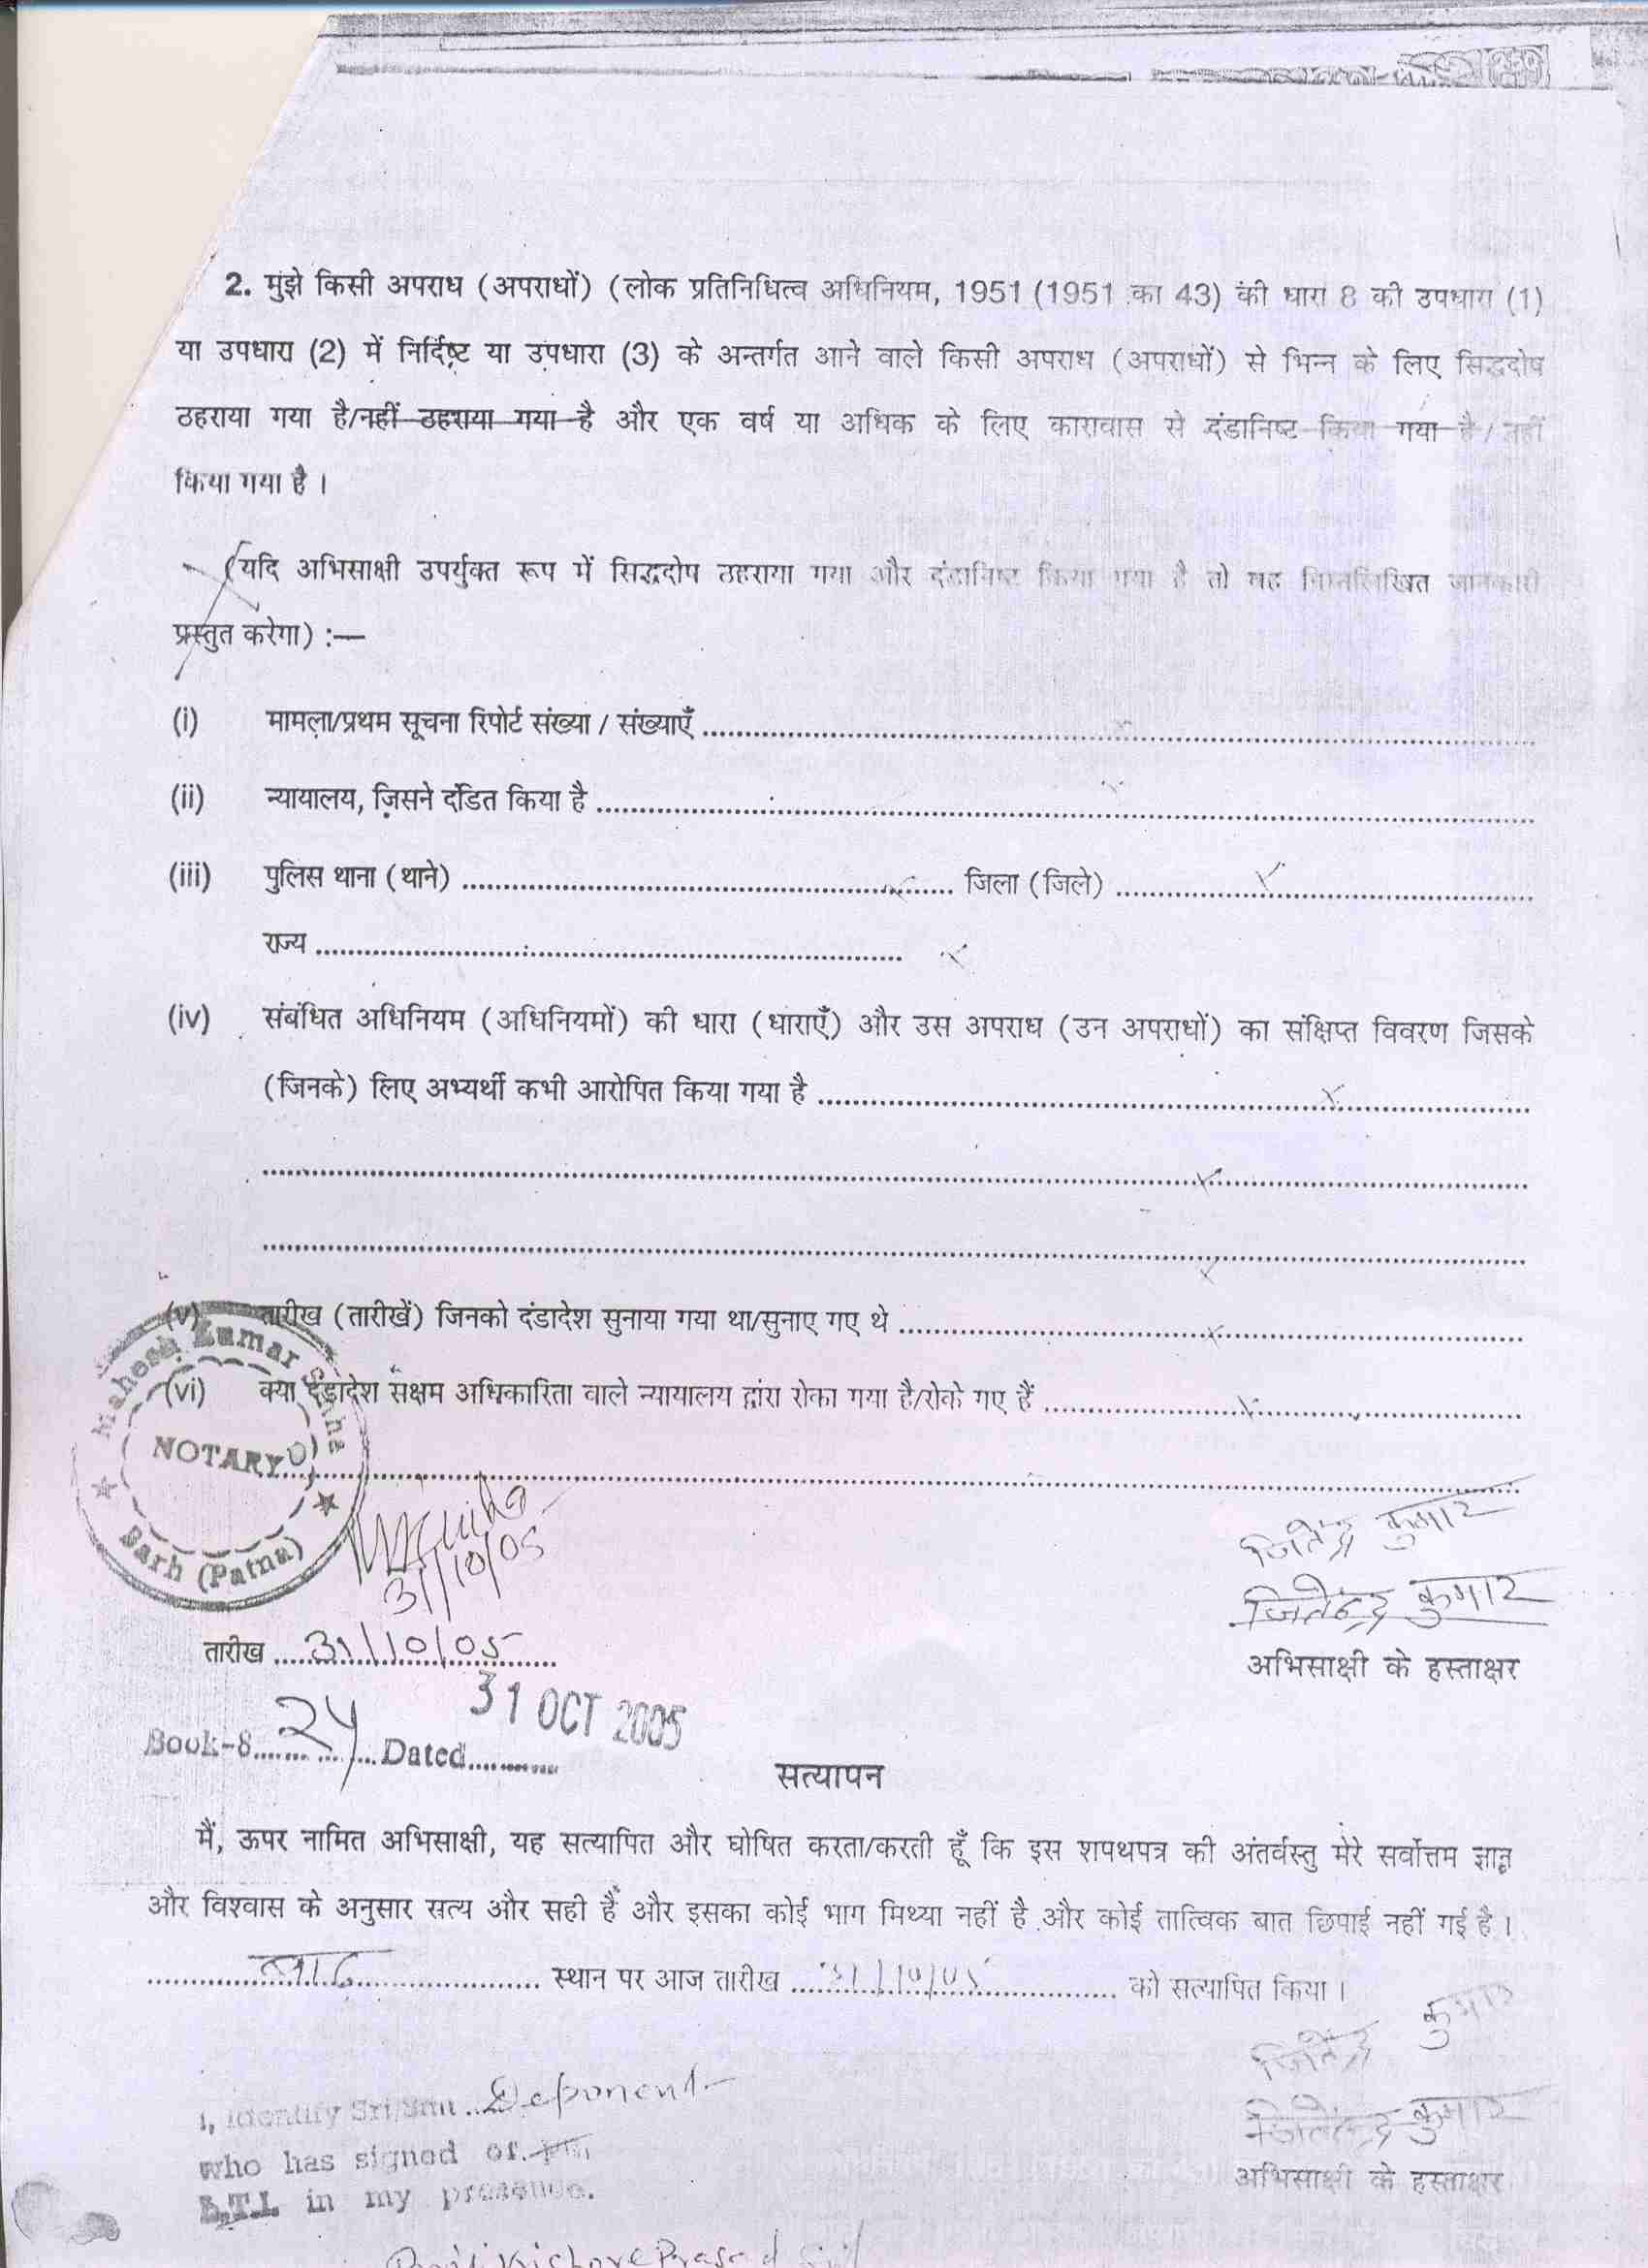 2. मुझे किसी अपराध (अपराधों) (लोक प्रतिनिधित्व अधिनियम, 1951 (1951 का 43) की धारा 8 की उपधारा (1)
या उपधारा (2) में निर्दिष्ट या उपधारा (3) के अन्तर्गत आने वाले किसी अपराध (अपराधों) से भिन्न के लिए सिद्धदोष
ठहराया गया है/नहीं ठहराया गया है और एक वर्ष या अधिक के लिए कारावास से दंडानिष्ट किया गया है / नहीं
किया गया है ।
(यदि अभिसाक्षी उपर्युक्त रूप में सिद्धदोष ठहराया गया और दंडानिष्ट किया गया है तो वह निम्नलिखित जानकारी
प्रस्तुत करेगा) :—
(i) मामला/प्रथम सूचना रिपोर्ट संख्या / संख्याएँ ........ x
(ii) न्यायालय, जिसने दंडित किया है ........ x
(iii) पुलिस थाना (थाने) ........ x ........ जिला (जिले) ........ x
राज्य ........ x
(iv) संबंधित अधिनियम (अधिनियमों) की धारा (धाराएँ) और उस अपराध (उन अपराधों) का संक्षिप्त विवरण जिसके
(जिनके) लिए अभ्यर्थी कभी आरोपित किया गया है ........ x
........ x
........ x
(v) तारीख (तारीखें) जिनको दंडादेश सुनाया गया था/सुनाए गए थे ........ x
(vi) क्या दंडादेश सक्षम अधिकारिता वाले न्यायालय द्वारा रोका गया है/रोके गए हैं ........ x
Mahesh Kumar Sinha
NOTARY
Barh (Patna)
31/10/05
जितेन्द्र कुमार
जितेन्द्र कुमार
अभिसाक्षी के हस्ताक्षर
तारीख ....31/10/05....
Book-8.... 24 ....Dated........ 31 OCT 2005
सत्यापन
मैं, ऊपर नामित अभिसाक्षी, यह सत्यापित और घोषित करता/करती हूँ कि इस शपथपत्र की अंतर्वस्तु मेरे सर्वोत्तम ज्ञान
और विश्वास के अनुसार सत्य और सही हैं और इसका कोई भाग मिथ्या नहीं है और कोई तात्विक बात छिपाई नहीं गई है ।
........ बाढ़ ........ स्थान पर आज तारीख ....31/10/05.... को सत्यापित किया ।
जितेन्द्र कुमार
जितेन्द्र कुमार
अभिसाक्षी के हस्ताक्षर
I, Identify Sri/Smt .. Deponent
who has signed of.
L.T.I. in my presence.
Kishore Prasad